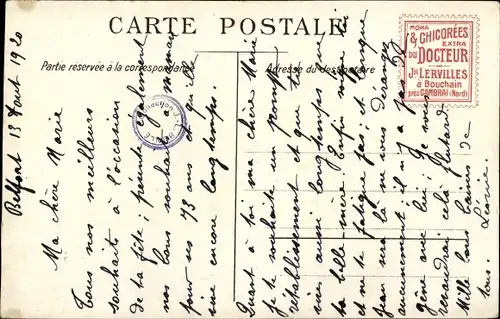 CARTE POSTALE
Partie réservée à la correspondance
Adresse du destinataire
MOKA
& CHICORÉES
EXTRA
DU DOCTEUR
Jh LERVILLES
à Bouchain
près CAMBRAI (Nord)
Belfort 13 Aout 1920
Ma chère Marie
Tous nos meilleurs
souhaits à l'occasion
de ta fête;
nous souhaitons à maman
pour ses 73 ans et qu'elle
vive encore longtemps.
Quant à toi ma chère Marie
je te souhaite un prompt
rétablissement et que tu
vives aussi longtemps que
ta belle-mère. Enfin soigne toi
et ne te fatigue pas; et puisque
Jean est là ne vous dérangez
aucunement il n'y a pas de
gêne avec lui; Je vous
revaudrai cela plus tard
Mille bons baisers de
tous. Léonie